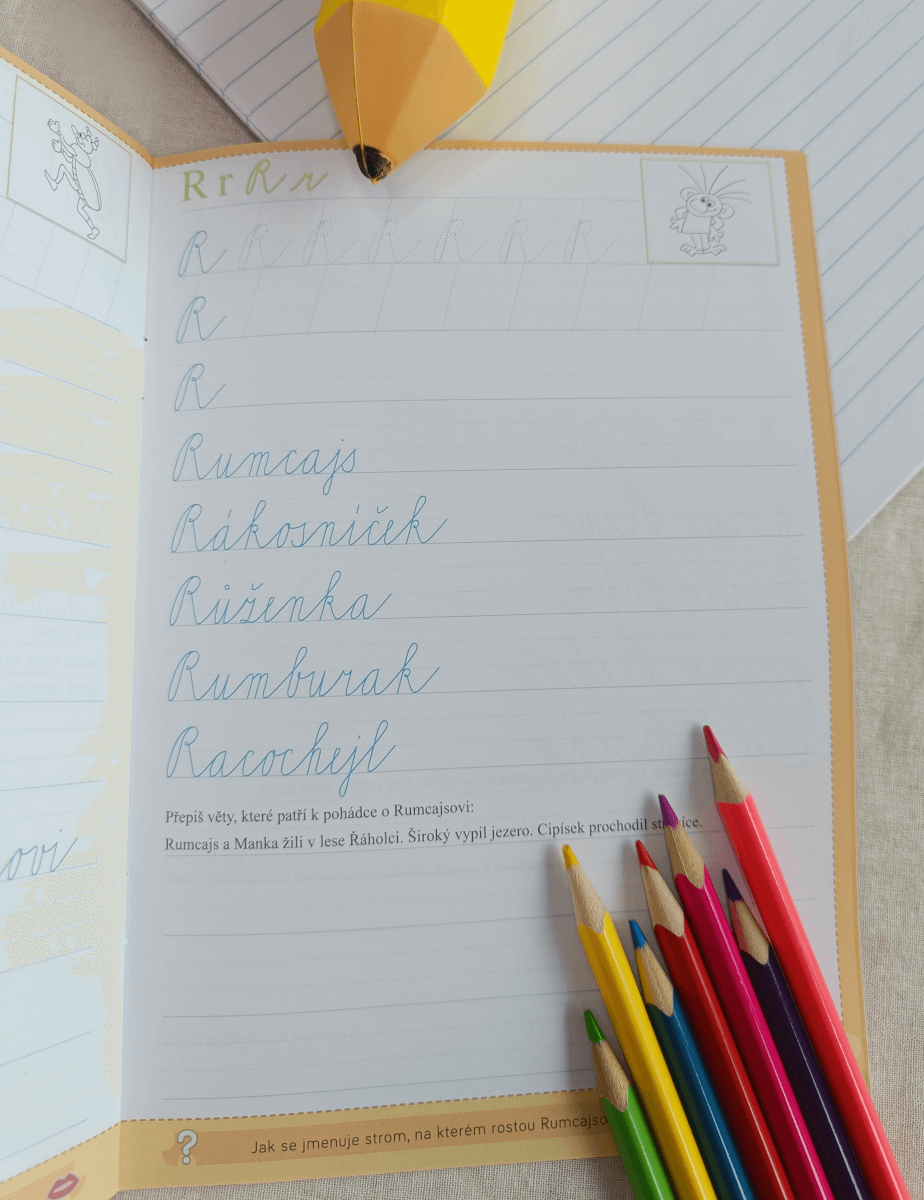 R r R r
R R R R R R R
R
R
Rumcajs
Rákosníček
Růženka
Rumburak
Racochejl
Přepiš věty, které patří k pohádce o Rumcajsovi:
Rumcajs a Manka žili v lese Řáholci. Široký vypil jezero. Cipísek prochodil
ovi
? Jak se jmenuje strom, na kterém rostou